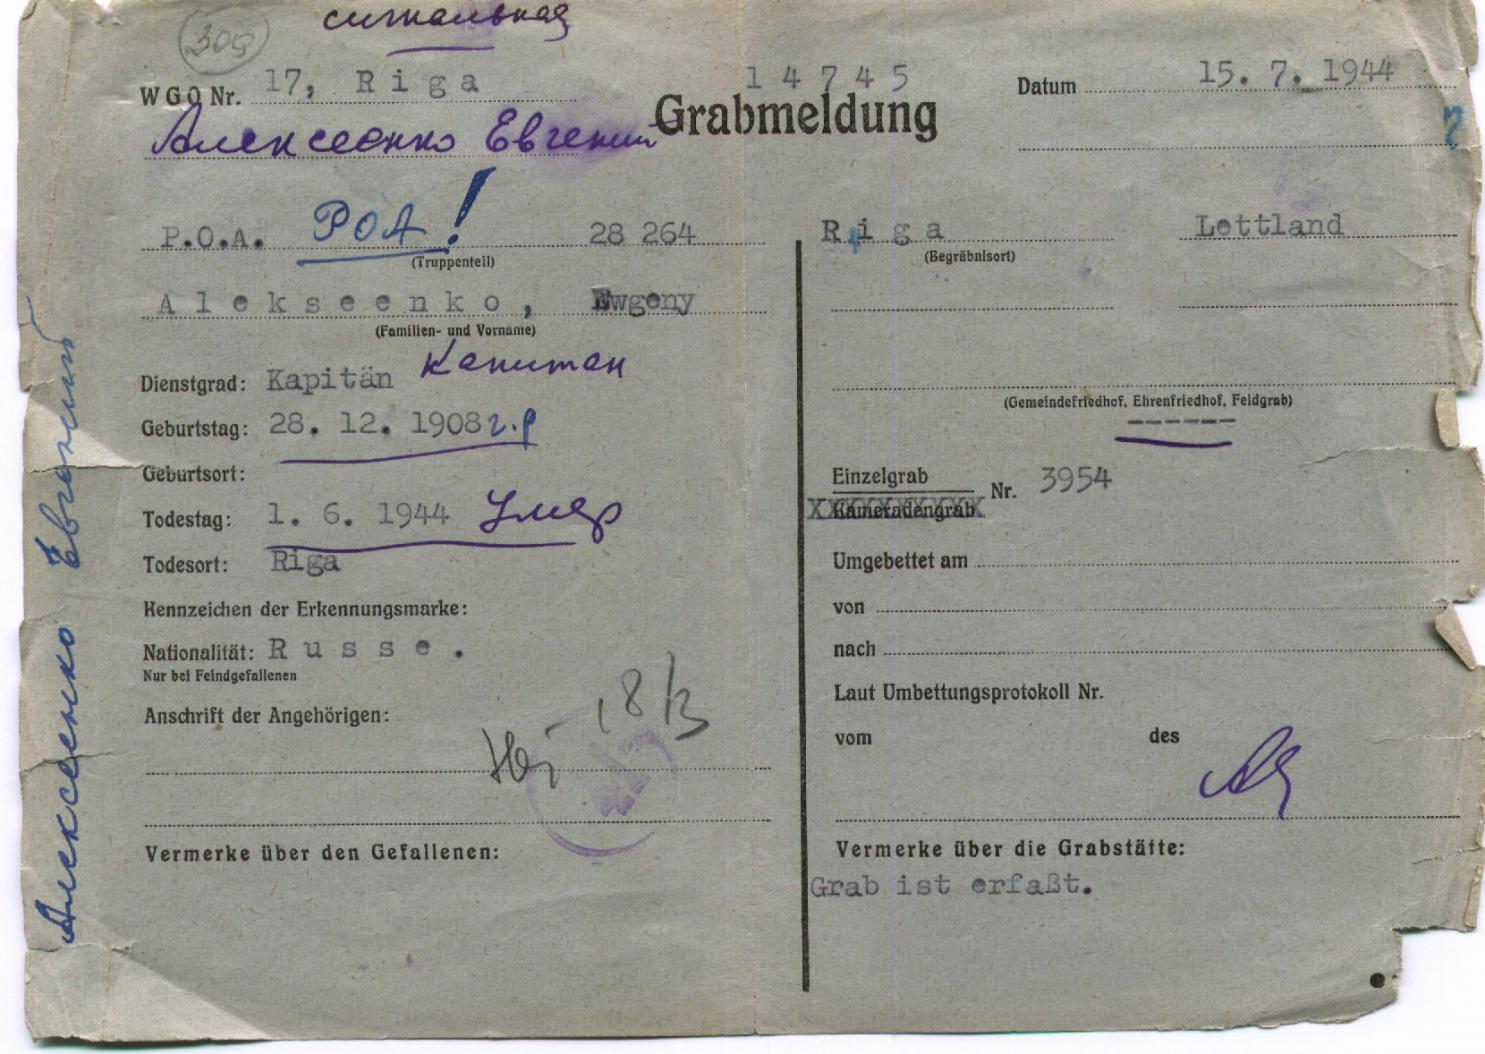 309
сигнальная
WGO Nr. 17, Riga
14745
Grabmeldung
Datum 15. 7. 1944
Алексеенко Евгений
P.O.A. РОА! 28 264
(Truppenteil)
Alekseenko, Ewgeny
(Familien- und Vorname)
Dienstgrad: Kapitän Капитан
Geburtstag: 28. 12. 1908 г.р
Geburtsort:
Todestag: 1. 6. 1944 Умер
Todesort: Riga
Kennzeichen der Erkennungsmarke:
Nationalität: Russe.
Nur bei Feindgefallenen
Anschrift der Angehörigen:
Vermerke über den Gefallenen:
Алексеенко Евгений
Riga Lettland
(Begräbnisort)
(Gemeindefriedhof, Ehrenfriedhof, Feldgrab)
Einzelgrab
Kameradengrab
Nr. 3954
Umgebettet am
von
nach
Laut Umbettungsprotokoll Nr.
vom des
Vermerke über die Grabstätte:
Grab ist erfaßt.